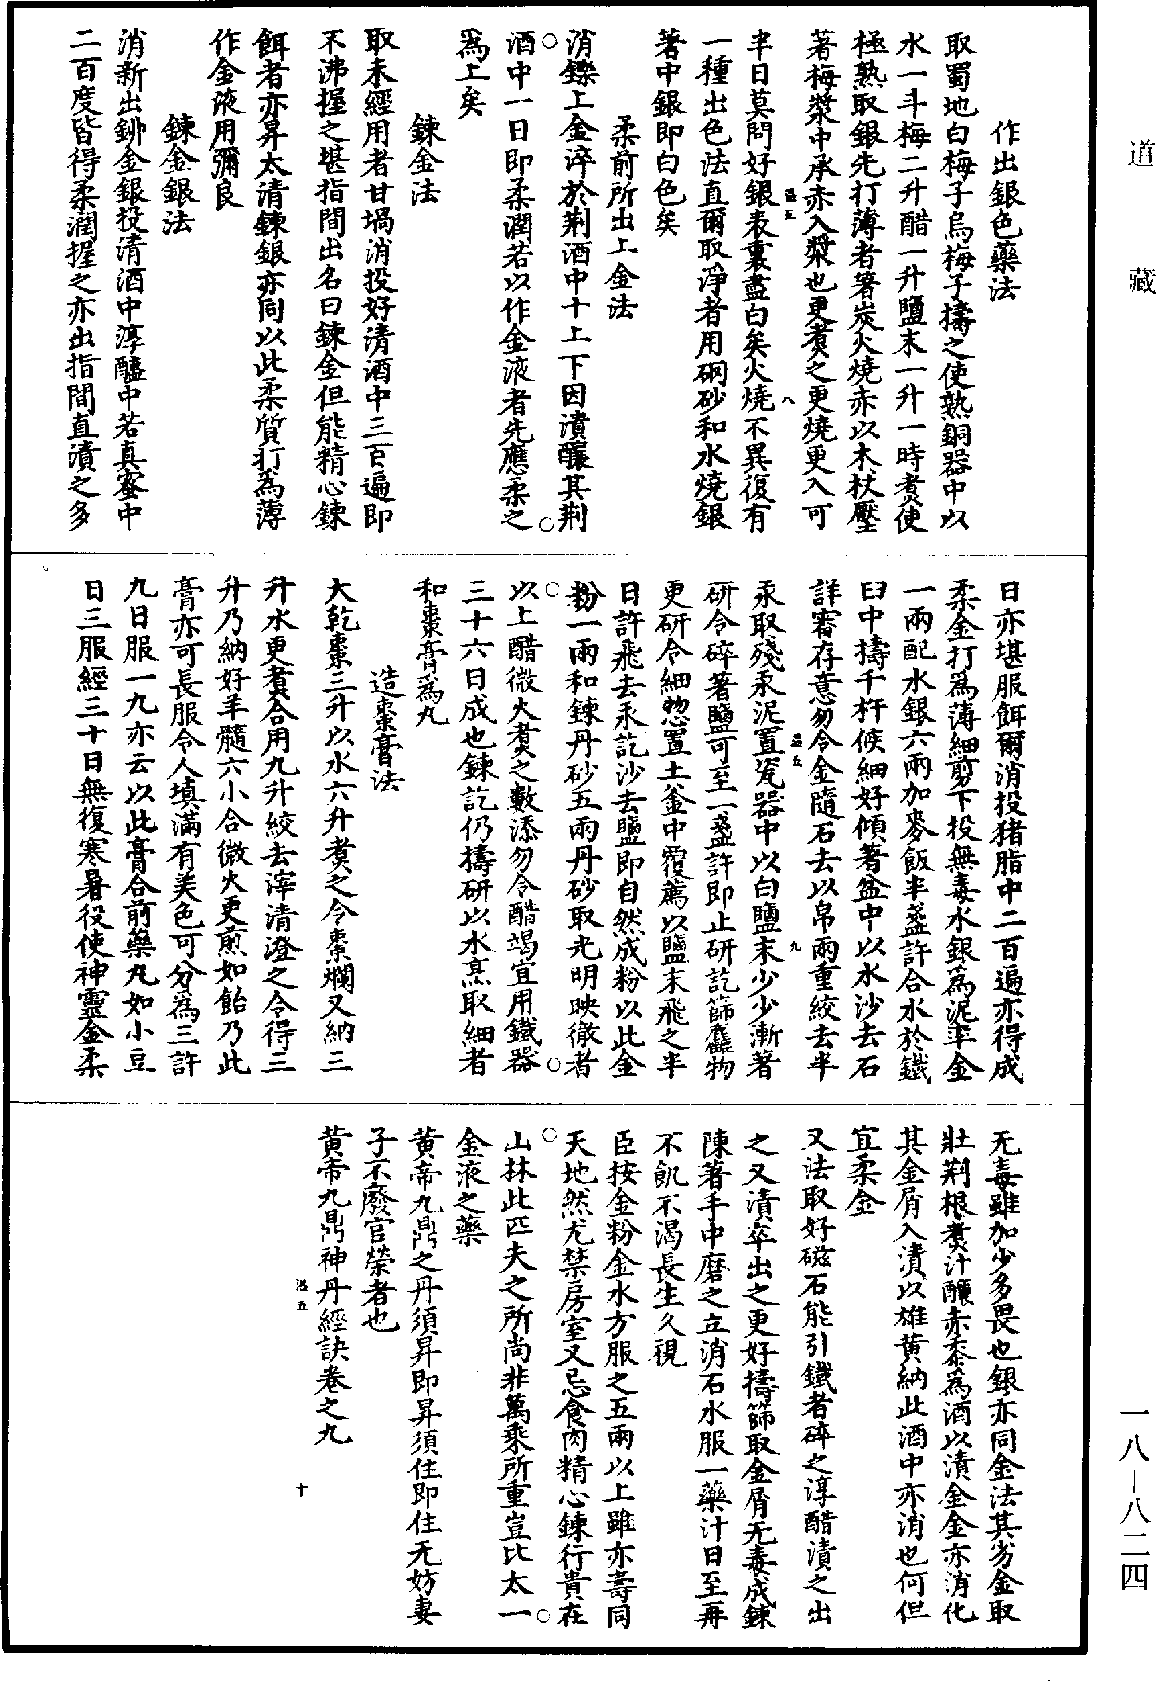 道藏
一八—八二四
作出銀色藥法
取蜀地白梅子烏梅子擣之使熟銅器中以
水一斗梅二升醋一升鹽末一升一時煑使
極熟取銀先打薄者著炭火燒赤以木杖壓
著梅漿中承赤入漿也更煑之更燒更入可
半日莫問好銀表裏盡白矣火燒不異復有
一種出色法直爾取淨者用硇砂和水燒銀
著中銀即白色矣
柔前所出上金法
消鑠上金淬於荆酒中十上下因漬釀其荆
酒中一日即柔潤若以作金液者先應柔之
爲上矣
鍊金法
取未經用者甘堝消投好清酒中三百遍即
不沸握之堪指間出名曰鍊金但能精心鍊
餌者亦昇太清鍊銀亦同以此柔質打爲薄
作金液用彌良
鍊金銀法
消新出鉚金銀投清酒中淳醯中若真蜜中
二百度皆得柔潤握之亦出指間直漬之多
日亦堪服餌爾消投猪脂中二百遍亦得成
柔金打爲薄細剪下投無毒水銀爲泥率金
一兩配水銀六兩加麥飯半盞許合水於鐵
臼中擣千杵候細好傾著盆中以水沙去石
詳審存意勿令金隨石去以帛兩重絞去半
汞取殘汞泥置瓷器中以白鹽末少少漸著
研令碎著鹽可至一盞許即止研訖篩麤物
更研令細惣置土釜中覆薦以鹽末飛之半
日許飛去汞訖沙去鹽即自然成粉以此金
粉一兩和鍊丹砂五兩丹砂取光明映徹者
以上醋微火煑之數添勿令醋竭宜用鐵器
三十六日成也鍊訖仍擣研以水烹取細者
和棗膏爲丸
造棗膏法
大乾棗三升以水六升煑之令棗爛又納三
升水更煑合用九升絞去滓清澄之令得三
升乃納好羊髓六小合微火更煎如飴乃此
膏亦可長服令人填滿有美色可分爲三許
九日服一丸亦云以此膏合前藥丸如小豆
日三服經三十日無復寒暑役使神靈金柔
无毒雖加少多畏也銀亦同金法其劣金取
壯荆根煑汁釀赤黍爲酒以漬金金亦消化
其金屑入漬以雄黄納此酒中亦消也何但
宜柔金
又法取好磁石能引鐵者碎之淳醋漬之出
之又漬卒出之更好擣篩取金屑无毒成鍊
陳著手中磨之立消石水服一藥汁日至再
不飢不渴長生久視
臣按金粉金水方服之五兩以上雖亦壽同
天地然尤禁房室又忌食肉精心鍊行貴在
山林此匹夫之所尚非萬乘所重豈比太一
金液之藥
黄帝九鼎之丹須昇即昇須住即住无妨妻
子不廢官榮者也
黄帝九鼎神丹經訣卷之九
八
九
十